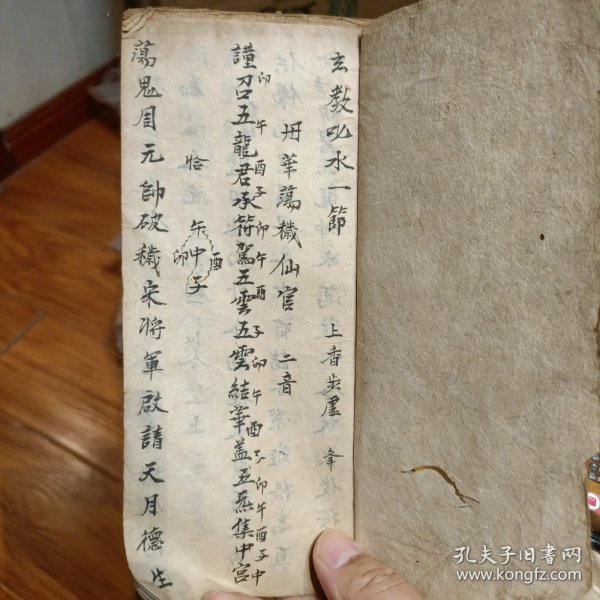 玄教叱水一節 上香步虛 聿
丹華蕩穢仙官 二音
謹召五龍君承符駕五雲五雲結華蓋五炁集中宮
卯午酉子卯午酉子卯午酉子卯午酉子中
恰
午
卯中酉
子
蕩鬼周元帥破穢宋將軍啟請天月德生
孔夫子旧书网
www.kongfz.com